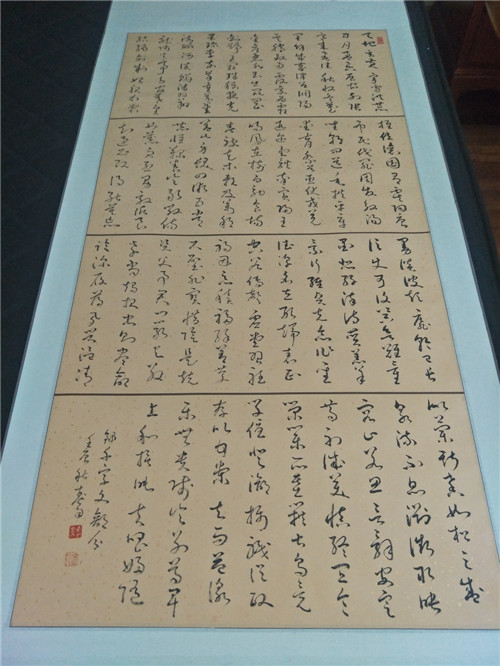 天地玄黃宇宙洪荒
日月盈昃辰宿列張
寒來暑往秋收冬藏
閏餘成歲律呂調陽
雲騰致雨露結為霜
金生麗水玉出崑岡
劍號巨闕珠稱夜光
菓珍李柰菜重芥薑
海鹹河淡鱗潛羽翔
龍師火帝鳥官人皇
始制文字乃服衣裳
推位讓國有虞陶唐
弔民伐罪周發殷湯
坐朝問道垂拱平章
愛育黎首臣伏戎羌
遐邇壹體率賓歸王
鳴鳳在樹白駒食場
化被草木賴及萬方
蓋此身髮四大五常
恭惟鞠養豈敢毀傷
女慕貞潔男效才良
知過必改得能莫忘
罔談彼短靡恃己長
信使可覆器欲難量
墨悲絲染詩讚羔羊
景行維賢克念作聖
德建名立形端表正
空谷傳聲虛堂習聽
禍因惡積福緣善慶
尺璧非寶寸陰是競
資父事君曰嚴與敬
孝當竭力忠則盡命
臨深履薄夙興溫凊
似蘭斯馨如松之盛
川流不息淵澄取映
容止若思言辭安定
篤初誠美慎終宜令
榮業所基籍甚無竟
學優登仕攝職從政
存以甘棠去而益詠
樂殊貴賤禮別尊卑
上和下睦夫唱婦隨
錄千字文部分
壬辰秋